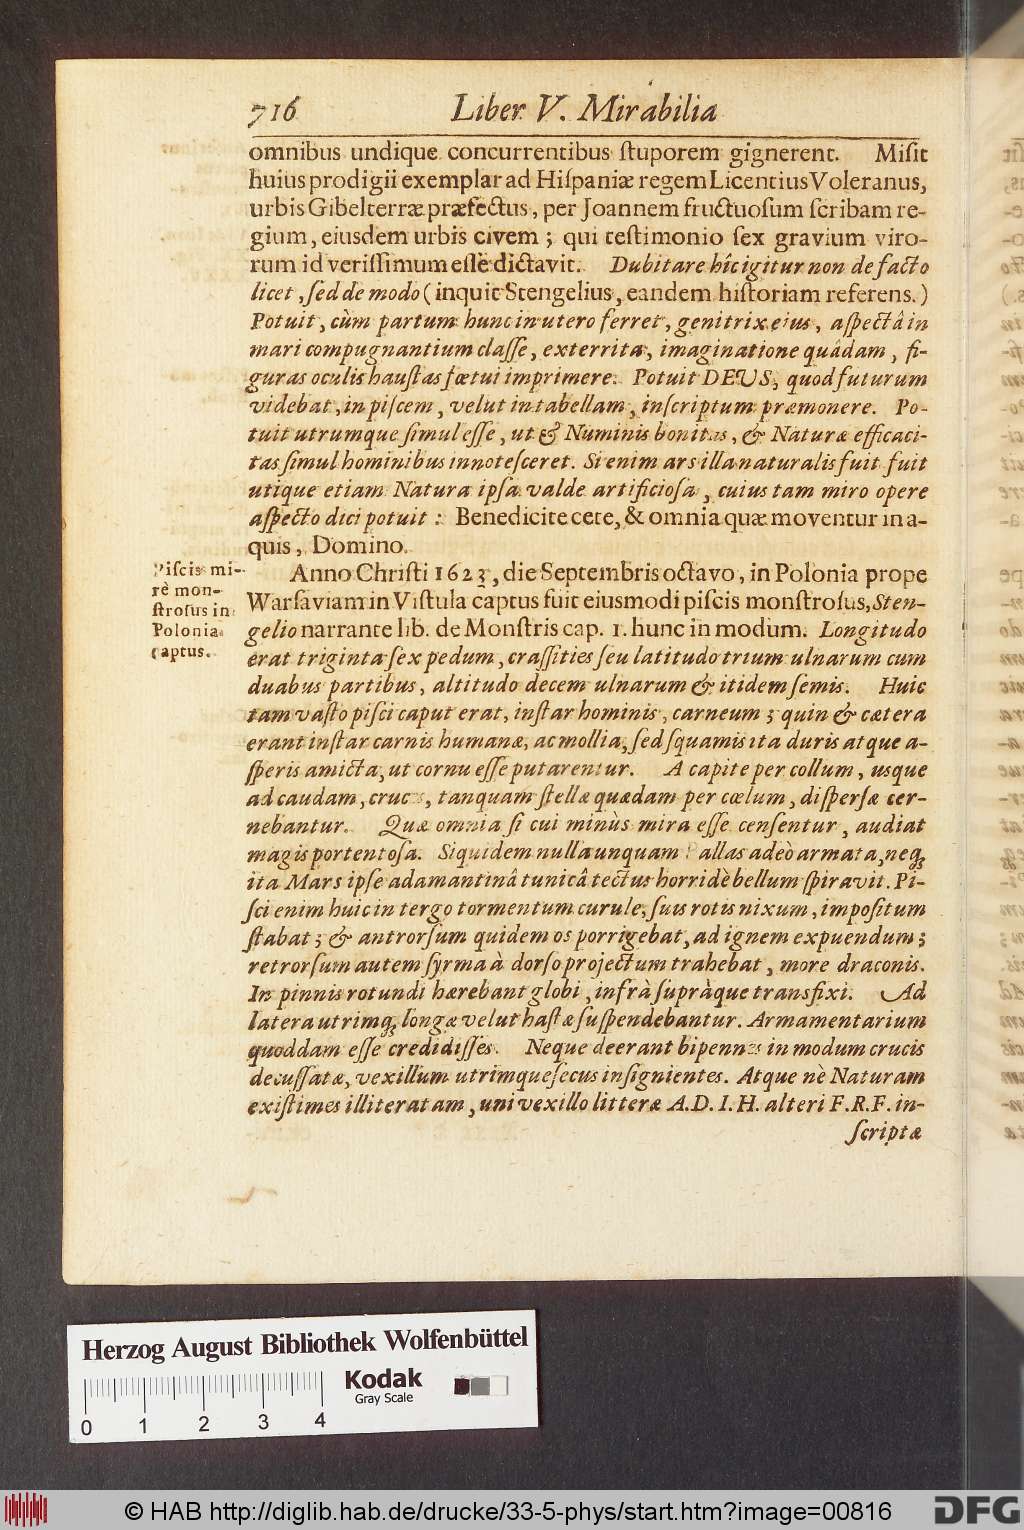 716 Liber V. Mirabilia
omnibus undique concurrentibus ſtuporem gignerent. Miſit
huius prodigii exemplar ad Hiſpaniæ regem Licentius Voleranus,
urbis Gibelterræ præfectus, per Joannem fructuoſum ſcribam re-
gium, eiusdem urbis civem; qui teſtimonio ſex gravium viro-
rum id veriſſimum eſſe dictavit. Dubitare hîc igitur non de facto
licet, ſed de modo (inquit Stengelius, eandem hiſtoriam referens.)
Potuit, cùm partum hunc in utero ferret, genitrix eius, aſpectâ in
mari compugnantium claſſe, exterrita, imaginatione quâdam, fi-
guras oculis hauſtas fœtui imprimere. Potuit DEUS, quod futurum
videbat, in piſcem, velut in tabellam, inſcriptum præmonere. Po-
tuit utrumque ſimul eſſe, ut & Numinis bonitas, & Naturæ efficaci-
tas ſimul hominibus innoteſceret. Si enim ars illa naturalis fuit fuit
utique etiam Natura ipſa valde artificioſa, cuius tam miro opere
aſpecto dici potuit: Benedicite cete, & omnia quæ moventur in a-
quis, Domino.
Piſcis mi-
rè mon-
ſtroſus in
Polonia
captus.
Anno Chriſti 1623, die Septembris octavo, in Polonia prope
Warſaviam in Viſtula captus fuit eiusmodi piſcis monſtroſus, Sten-
gelio narrante lib. de Monſtris cap. 1. hunc in modum. Longitudo
erat triginta ſex pedum, craſſities ſeu latitudo trium ulnarum cum
duabus partibus, altitudo decem ulnarum & itidem ſemis. Huic
tam vaſto piſci caput erat, inſtar hominis, carneum; quin & cætera
erant inſtar carnis humanæ, ac mollia, ſed ſquamis ita duris atque a-
ſperis amicta, ut cornu eſſe putarentur. A capite per collum, usque
ad caudam, cruces, tanquam ſtellæ quædam per cœlum, diſperſæ cer-
nebantur. Quæ omnia ſi cui minùs mira eſſe cenſentur, audiat
magis portentoſa. Siquidem nulla unquam Pallas adeò armata, neq;
ita Mars ipſe adamantinâ tunicâ tectus horridè bellum ſpiravit. Pi-
ſci enim huic in tergo tormentum curule, ſuis rotis nixum, impoſitum
ſtabat; & antrorſum quidem os porrigebat, ad ignem expuendum;
retrorſum autem ſyrma à dorſo projectum trahebat, more draconis.
In pinnis rotundi hærebant globi, infrà ſupràque transfixi. Ad
latera utrimq; longæ velut haſtæ ſuſpendebantur. Armamentarium
quoddam eſſe credidiſſes. Neque deerant bipennes in modum crucis
decuſſatæ, vexillum utrimqueſecus inſignientes. Atque nè Naturam
exiſtimes illiteratam, uni vexillo litteræ A. D. I. H. alteri F. R. F. in-
ſcriptæ
Herzog August Bibliothek Wolfenbüttel
Kodak
Gray Scale
0 1 2 3 4
© HAB http://diglib.hab.de/drucke/33-5-phys/start.htm?image=00816
DFG